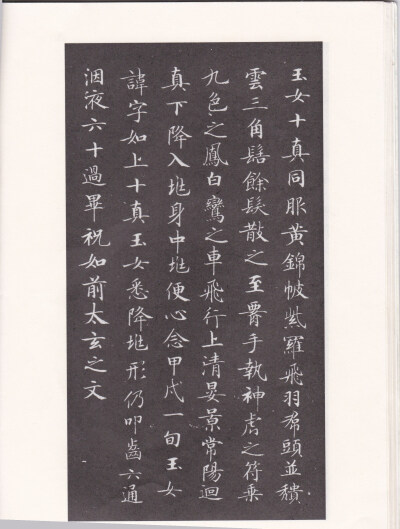 玉女十真同服黃錦帔紫羅飛羽帬頭並穨
雲三角髻餘髮散之至署手執神虎之符乗
九色之鳳白鸞之車飛行上清晏景常陽迴
真下降入兆身中兆便心念甲戌一旬玉女
諱字如上十真玉女悉降兆形仍叩齒六通
洇液六十過畢祝如前太玄之文